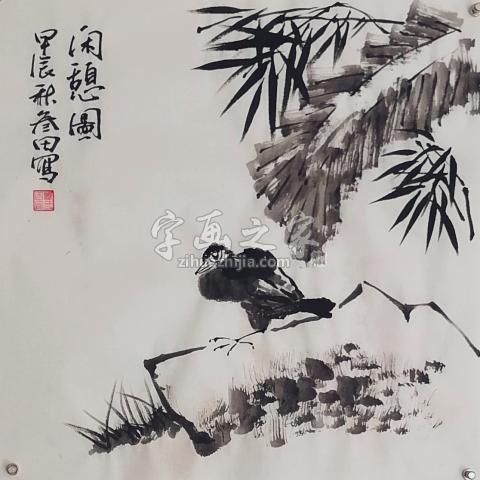 闲憩圖
甲辰秋叁田寫
字画之家
zihuazhijia.com